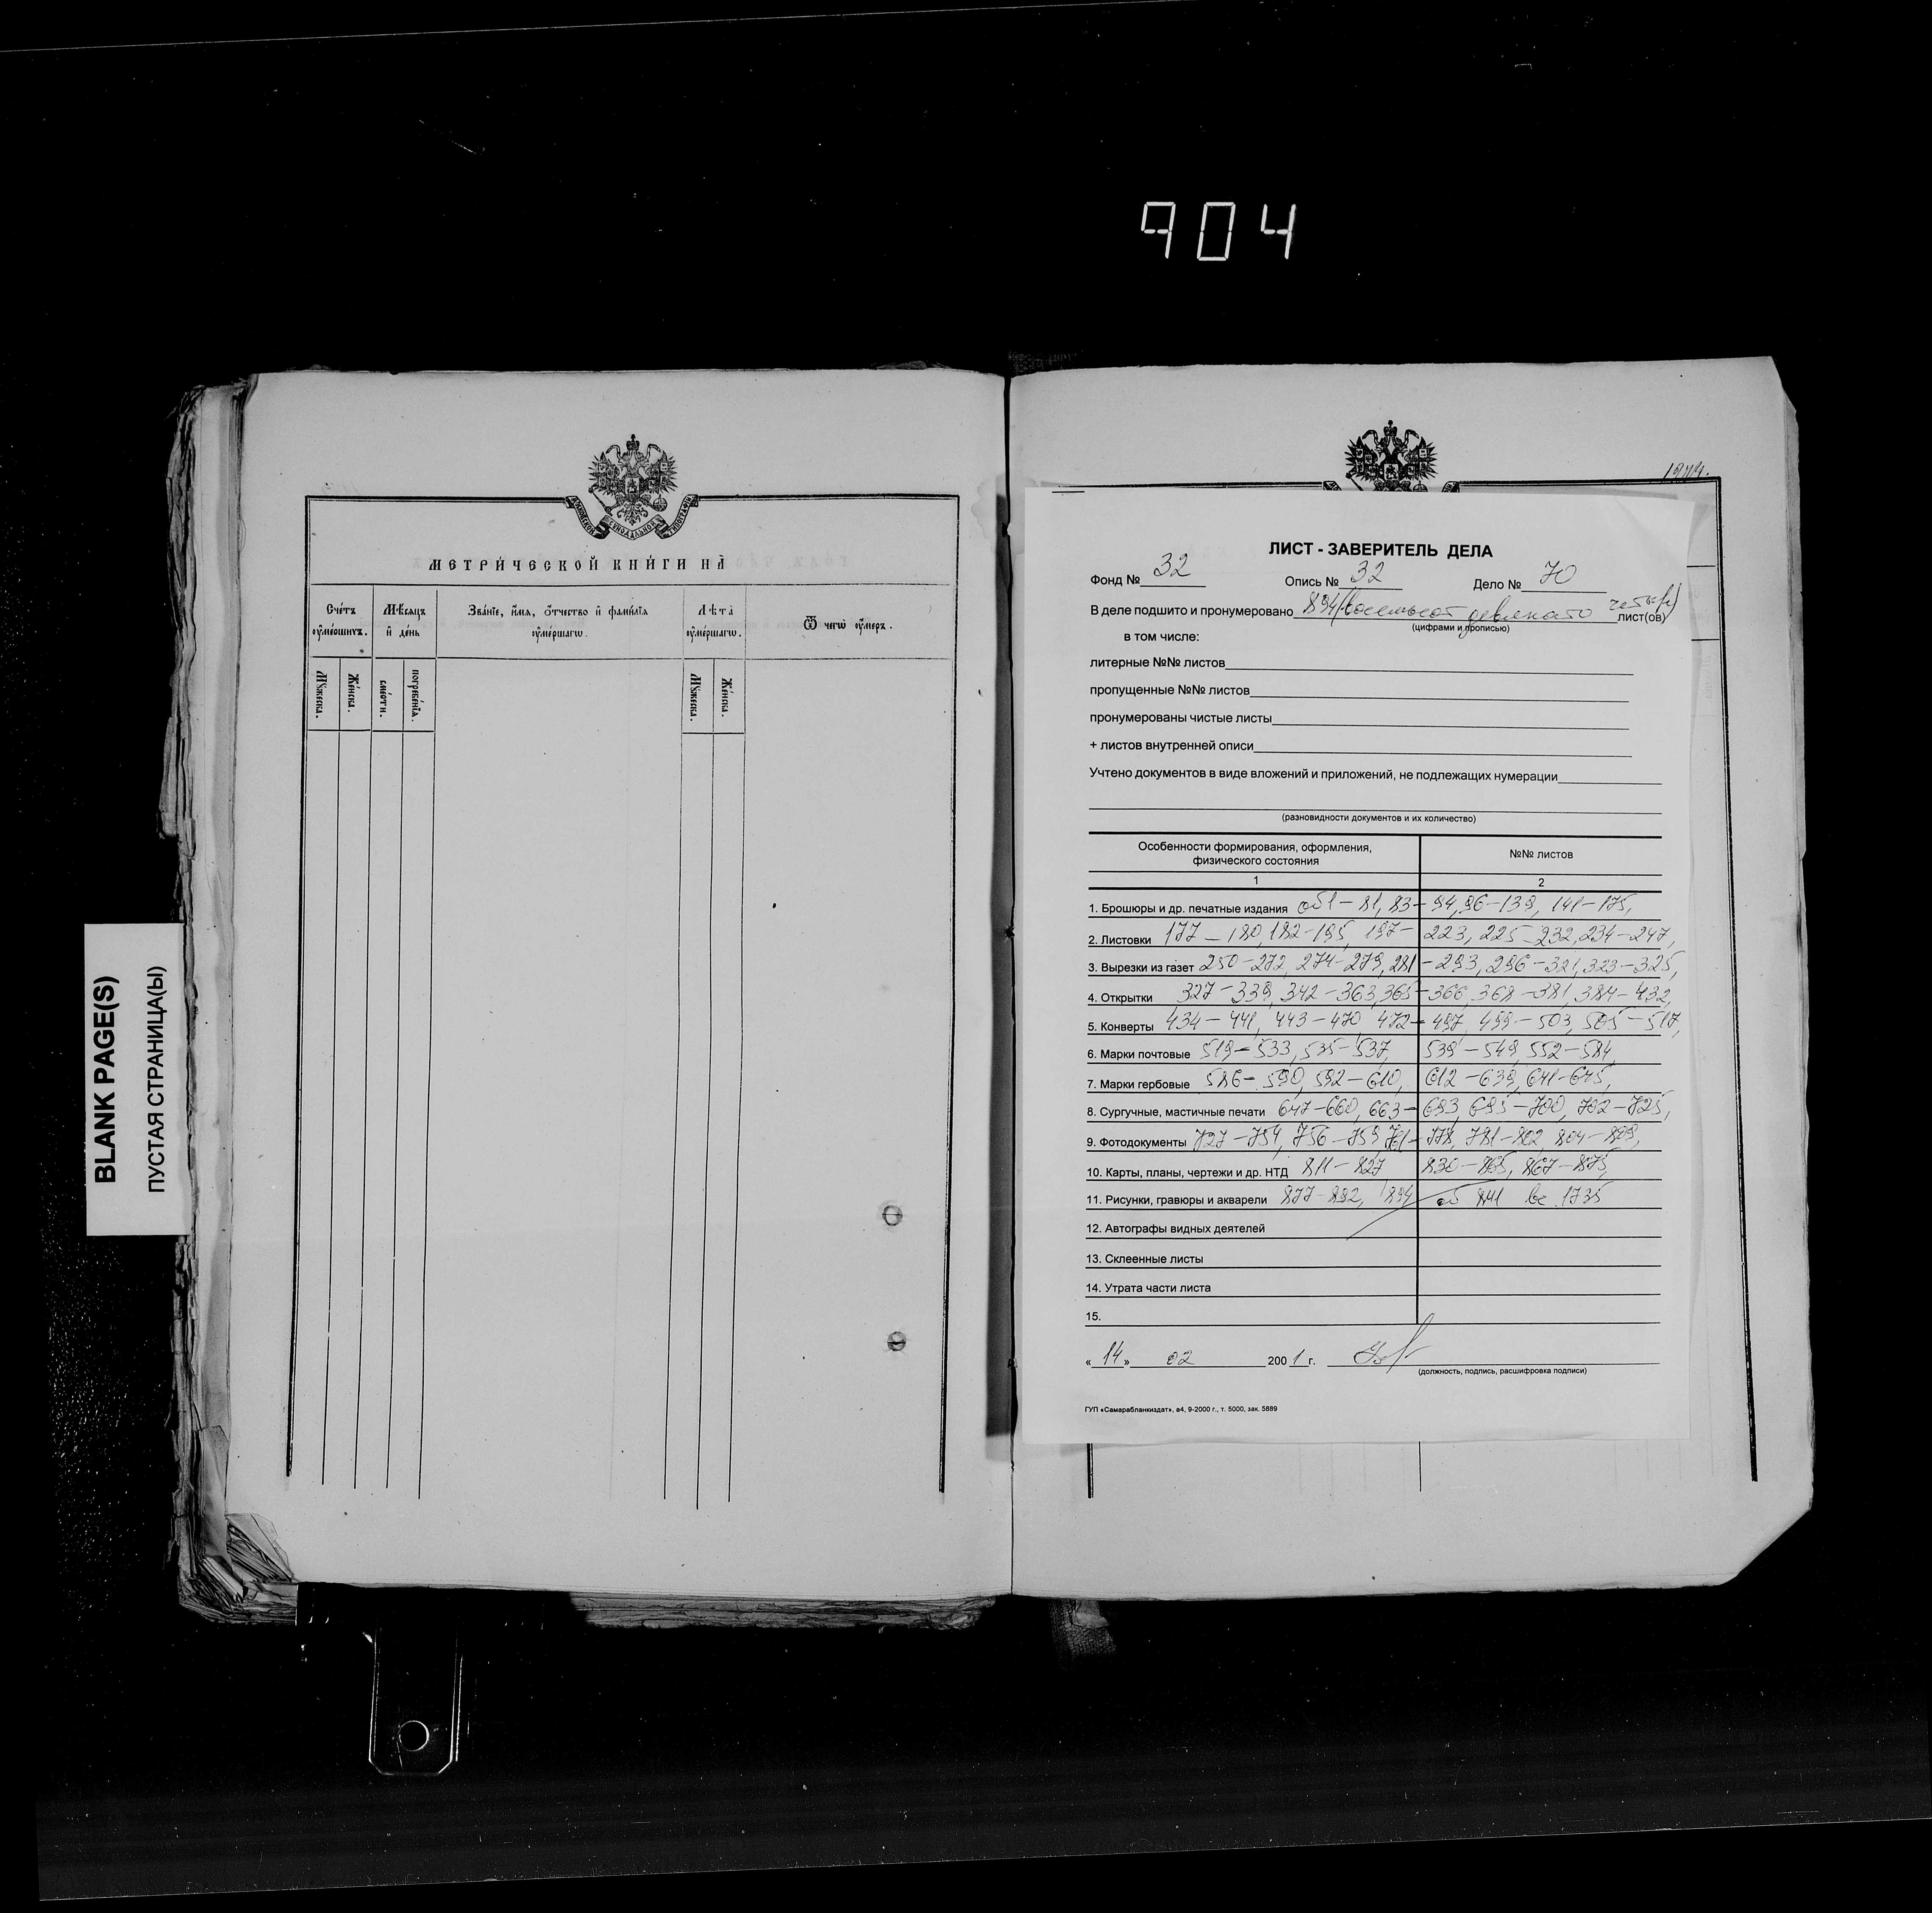 904
BLANK PAGE(S)
ПУСТАЯ СТРАНИЦА(Ы)
МОСКОВСКОЙ СѴНОДАЛЬНОЙ ТИПОГРАФІИ
МЕТРИ́ЧЕСКОЙ КНИ́ГИ НА̀
Сче́тъ ᲂу҆ме́ршихъ.
Мѣ́сяцъ и҆ де́нь
Зва́нїе, и҆́мѧ, ѻ҆́тчество и҆ фами́лїѧ ᲂу҆ме́ршагѡ.
Лѣ́та ᲂу҆ме́ршагѡ.
Ѿ чегѡ̀ ᲂу҆́меръ.
Мꙋ́жеска.
Же́нска.
сме́рти.
погребе́нїѧ.
Мꙋ́жеска.
Же́нска.
ЛИСТ - ЗАВЕРИТЕЛЬ ДЕЛА
Фонд № 32 Опись № 32 Дело № 70
В деле подшито и пронумеровано 894 (восемьсот девяносто четыре) лист(ов)
(цифрами и прописью)
в том числе:
литерные №№ листов
пропущенные №№ листов
пронумерованы чистые листы
+ листов внутренней описи
Учтено документов в виде вложений и приложений, не подлежащих нумерации
(разновидности документов и их количество)
Особенности формирования, оформления, физического состояния
№№ листов
1 2
1. Брошюры и др. печатные издания об1 – 81, 83 – 94, 96 – 139, 141 – 175,
2. Листовки 177 – 180, 182 – 195, 197 – 223, 225 – 232, 234 – 247,
3. Вырезки из газет 250 – 272, 274 – 279, 281 – 293, 296 – 321, 323 – 325,
4. Открытки 327 – 339, 342 – 363, 365 – 366, 368 – 381, 384 – 432,
5. Конверты 434 – 441, 443 – 470, 472 – 497, 499 – 503, 505 – 517,
6. Марки почтовые 519 – 533, 535 – 537, 539 – 549, 552 – 584,
7. Марки гербовые 586 – 590, 592 – 610, 612 – 639, 641 – 645,
8. Сургучные, мастичные печати 647 – 660, 663 – 693, 695 – 700, 702 – 725,
9. Фотодокументы 727 – 754, 756 – 759, 761 – 778, 781 – 802, 804 – 809,
10. Карты, планы, чертежи и др. НТД 811 – 827 830 – 865, 867 – 875,
11. Рисунки, гравюры и акварели 877 – 892, 894 об 841 вс. 1735
12. Автографы видных деятелей
13. Склеенные листы
14. Утрата части листа
15.
« 14 » 02 2001 г.
(должность, подпись, расшифровка подписи)
ГУП «Самарабланкиздат», а4, 9-2000 г., т. 5000, зак. 5889